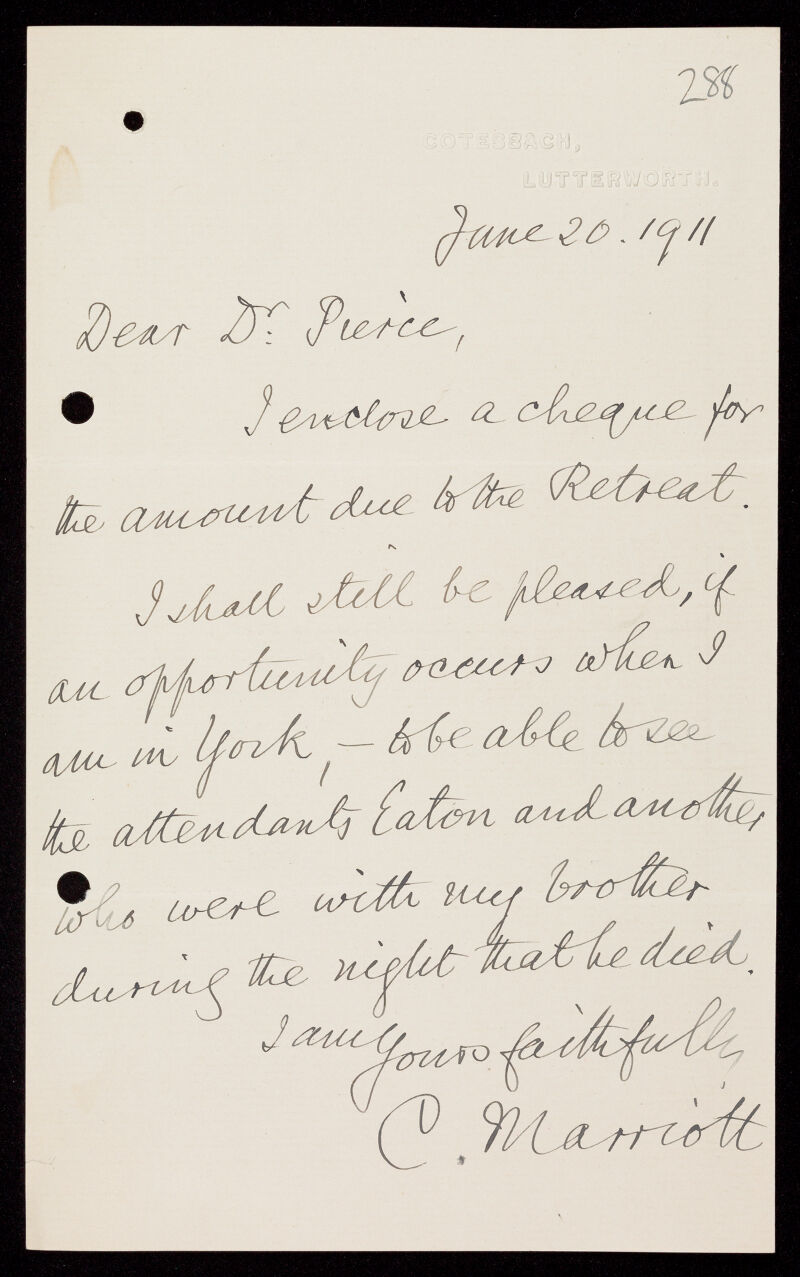 288
COTESBACH,
LUTTERWORTH.
June 20. 1911
Dear Dr. Pierce,
I enclose a cheque for
the amount due to the Retreat.
I shall still be pleased, if
an opportunity occurs when I
am in York, – to be able to see
the attendants Eaton and another
who were with my brother
during the night that he died.
I am Yours faithfully
C. Marriott